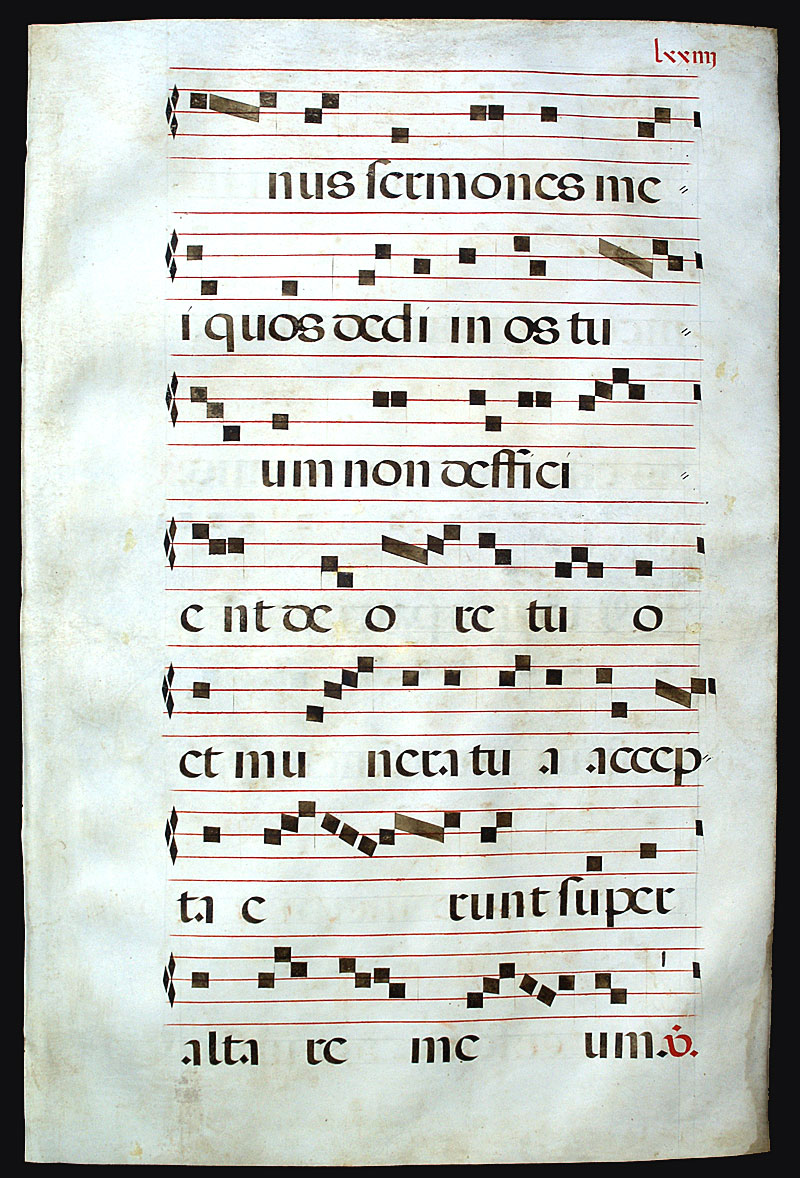 lxxiiij
nus sermones me〃
i quos dedi in os tu〃
um non deffici〃
e nt de o re tu o
et mu nera tu a accep〃
ta e runt super
alta re me um. v.